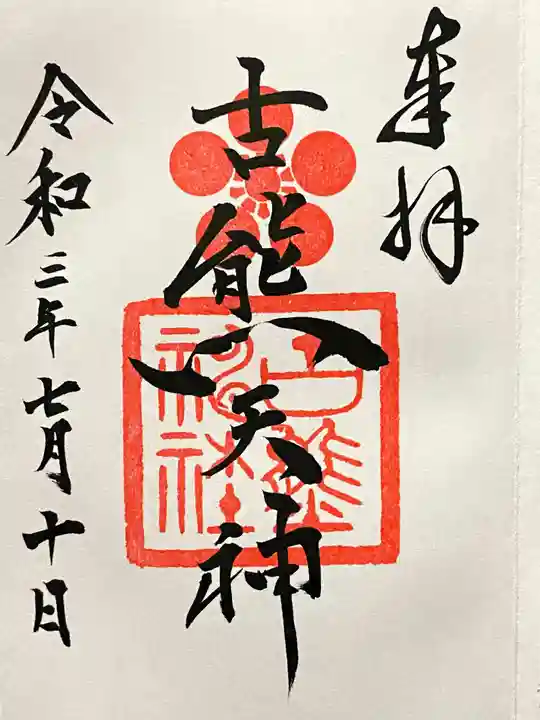 奉拝
古熊天神
古熊
神社
令和三年七月十日